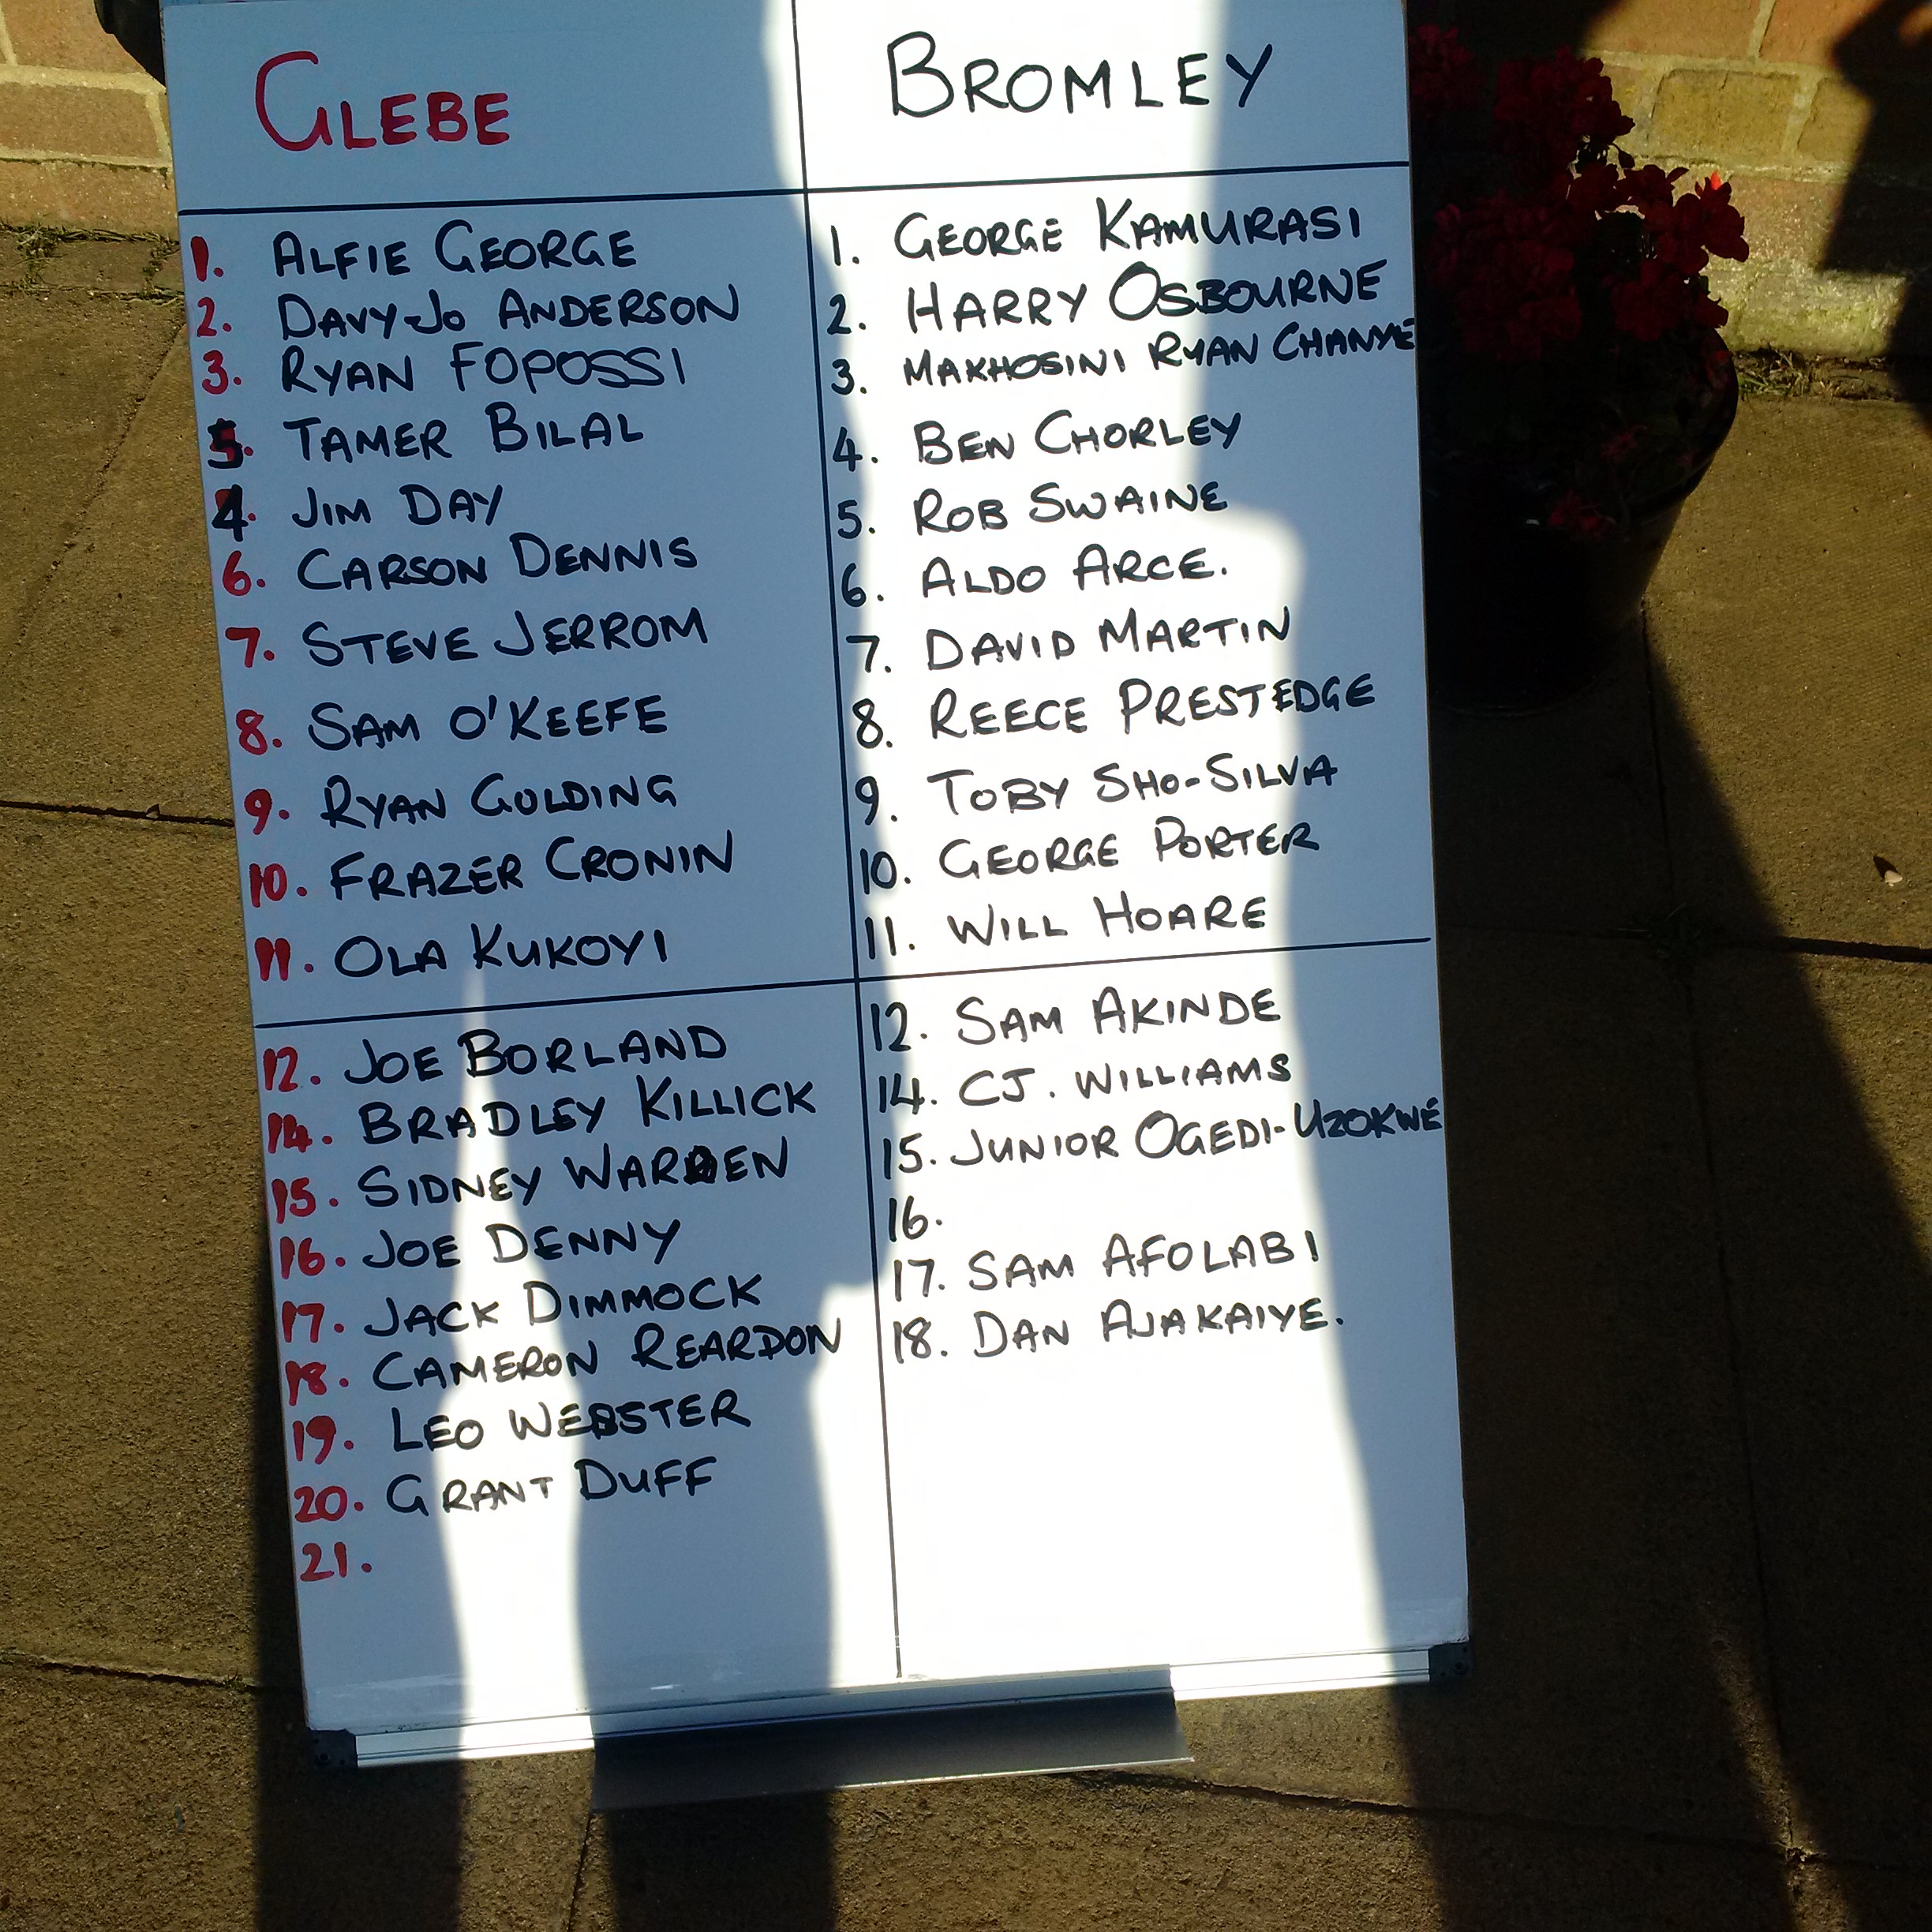 GLEBE
1. ALFIE GEORGE
2. DAVY-JO ANDERSON
3. RYAN FOPOSSI
5. TAMER BILAL
4. JIM DAY
6. CARSON DENNIS
7. STEVE JERROM
8. SAM O'KEEFE
9. RYAN GOLDING
10. FRAZER CRONIN
11. OLA KUKOYI
12. JOE BORLAND
14. BRADLEY KILLICK
15. SIDNEY WARDEN
16. JOE DENNY
17. JACK DIMMOCK
18. CAMERON REARDON
19. LEO WEBSTER
20. GRANT DUFF
21.
BROMLEY
1. GEORGE KAMURASI
2. HARRY OSBOURNE
3. MAKHOSINI RYAN CHANYE
4. BEN CHORLEY
5. ROB SWAINE
6. ALDO ARCE.
7. DAVID MARTIN
8. REECE PRESTEDGE
9. TOBY SHO-SILVA
10. GEORGE PORTER
11. WILL HOARE
12. SAM AKINDE
14. CJ. WILLIAMS
15. JUNIOR OGEDI-UZOKWE
16.
17. SAM AFOLABI
18. DAN AJAKAIYE.